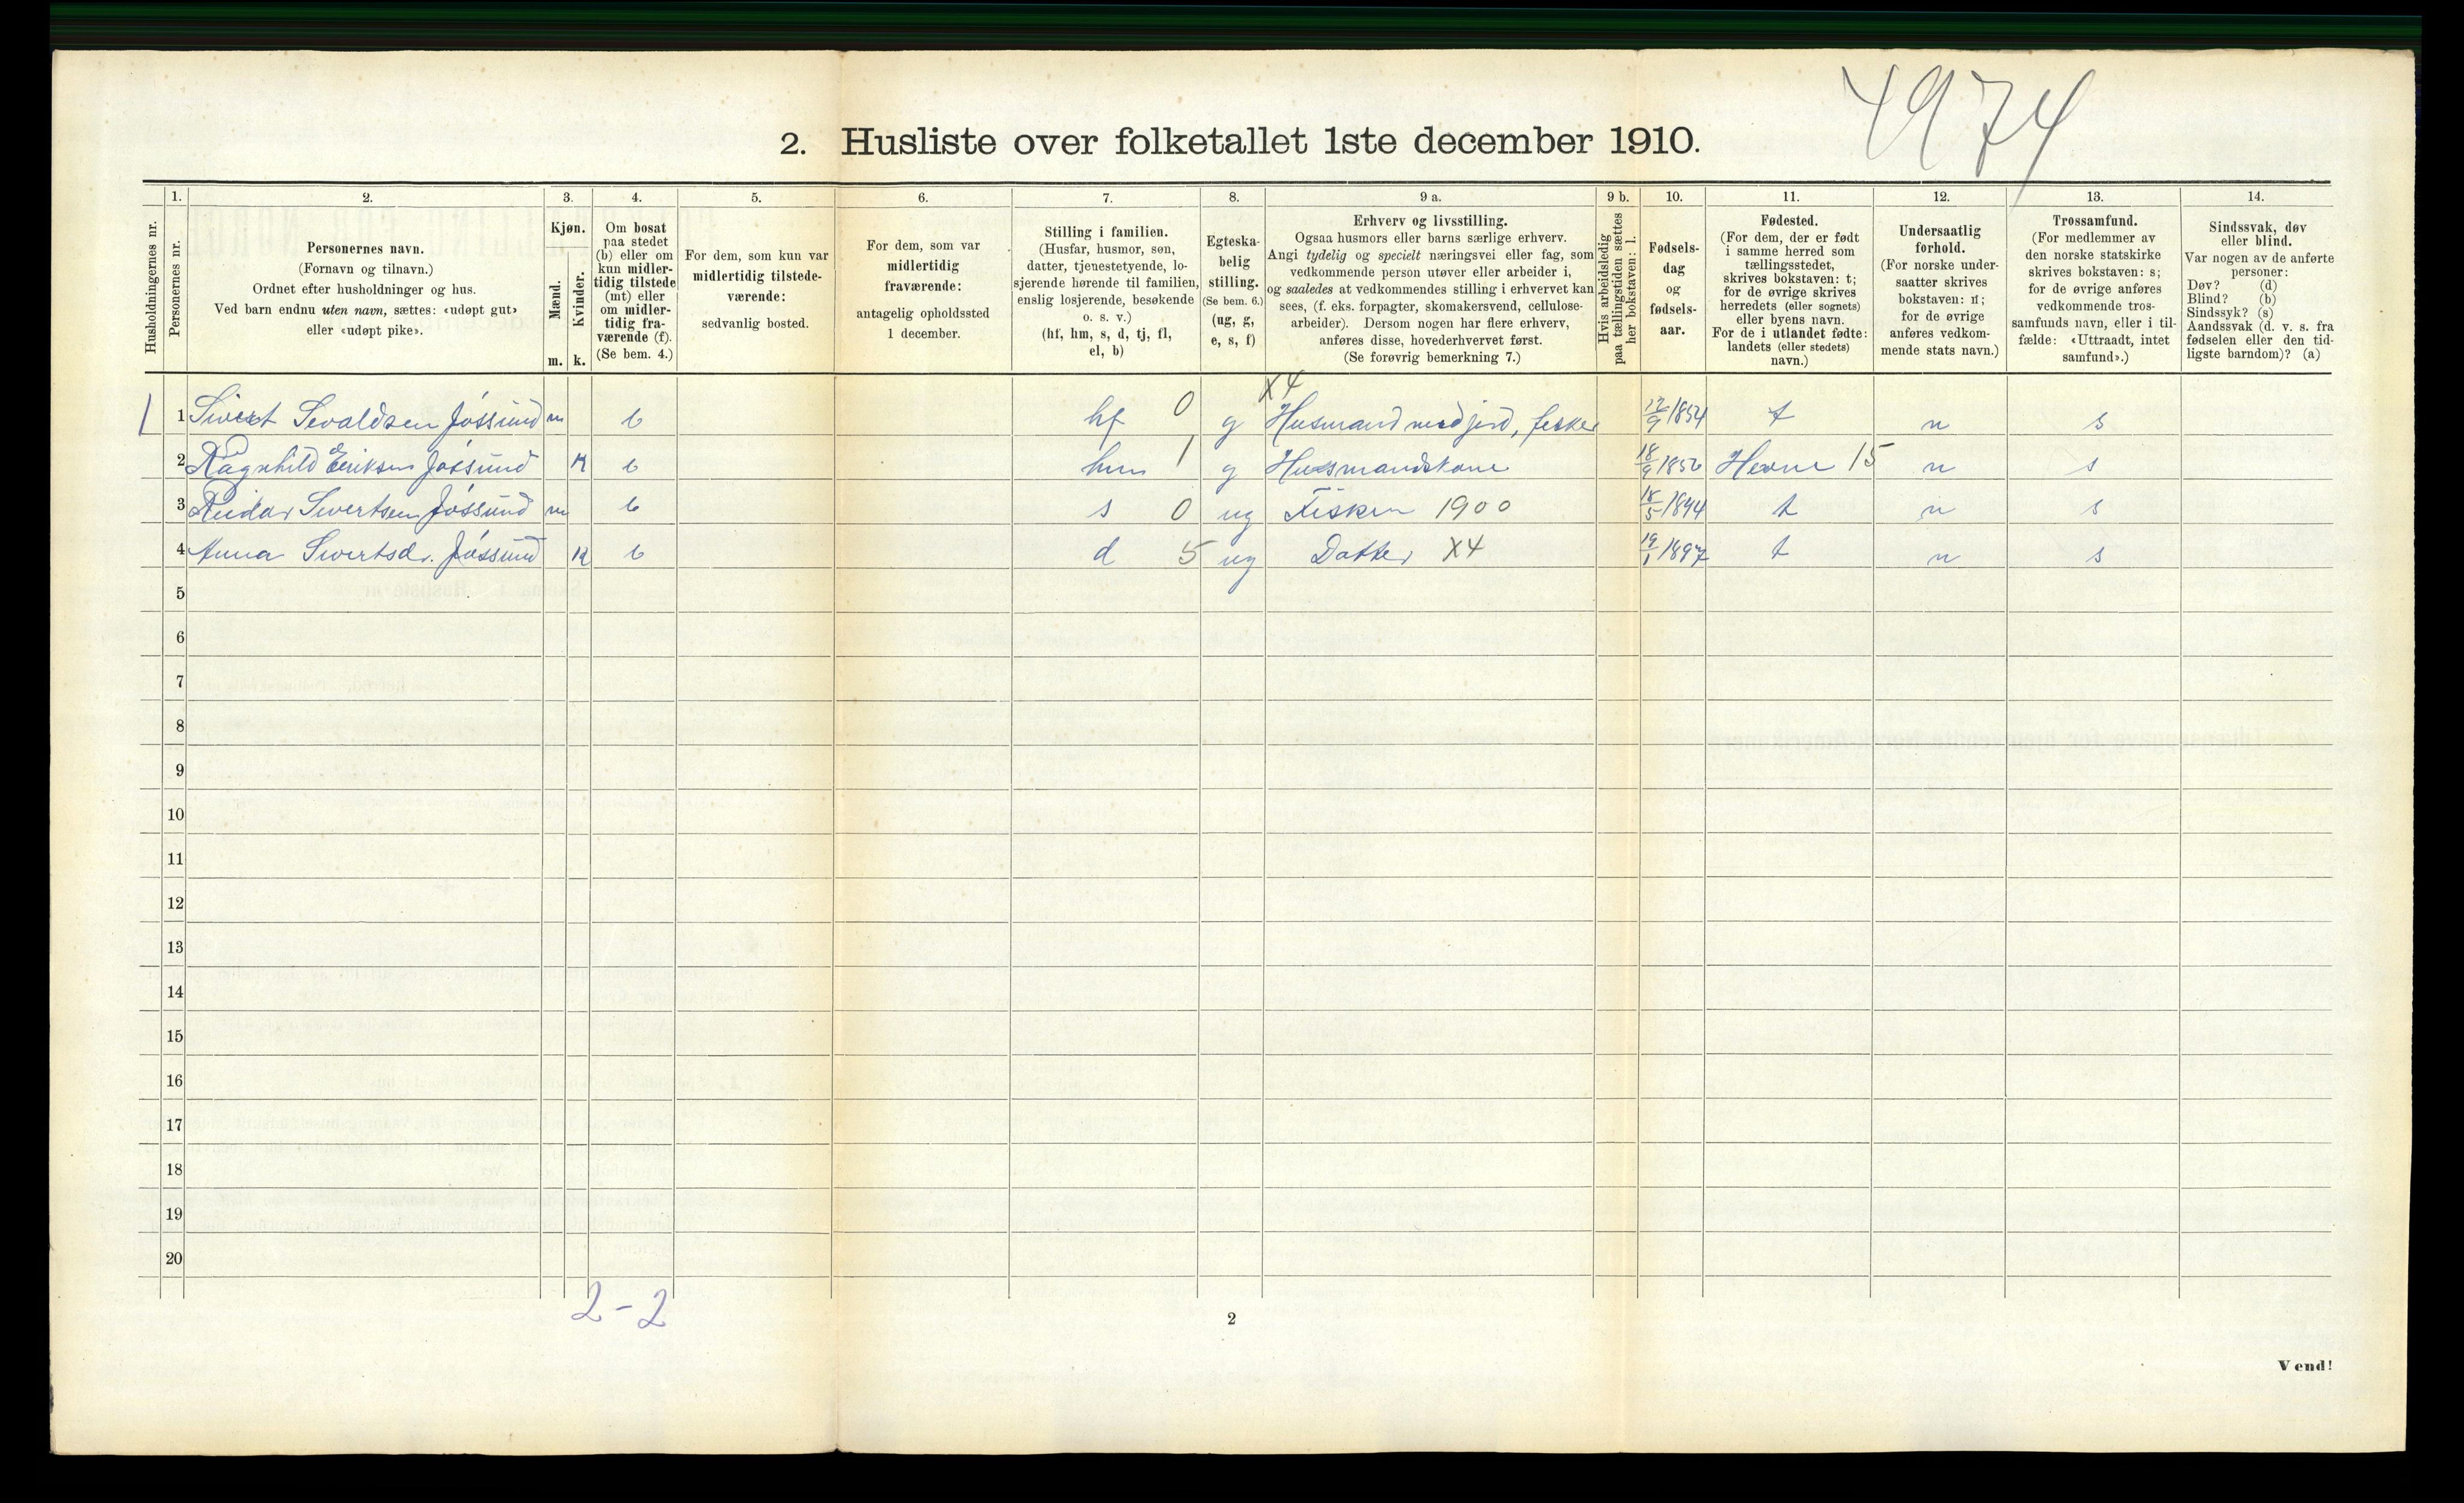 4974
2. Husliste over folketallet 1ste december 1910.
Husholdningernes nr.
1.
Personernes nr.
2.
Personernes navn.
(Fornavn og tilnavn.)
Ordnet efter husholdninger og hus.
Ved barn endnu uten navn, sættes: «udøpt gut»
eller «udøpt pike».
3.
Kjøn.
Mænd.
Kvinder.
m. k.
4.
Om bosat
paa stedet
(b) eller om
kun midler-
tidig tilstede
(mt) eller
om midler-
tidig fra-
værende (f).
(Se bem. 4.)
5.
For dem, som kun var
midlertidig tilstede-
værende:
sedvanlig bosted.
6.
For dem, som var
midlertidig
fraværende:
antagelig opholdssted
1 december.
7.
Stilling i familien.
(Husfar, husmor, søn,
datter, tjenestetyende, lo-
sjerende hørende til familien,
enslig losjerende, besøkende
o. s. v.)
(hf, hm, s, d, tj, fl,
el, b)
8.
Egteska-
belig
stilling.
(Se bem. 6.)
(ug, g,
e, s, f)
9 a.
Erhverv og livsstilling.
Ogsaa husmors eller barns særlige erhverv.
Angi tydelig og specielt næringsvei eller fag, som
vedkommende person utøver eller arbeider i,
og saaledes at vedkommendes stilling i erhvervet kan
sees, (f. eks. forpagter, skomakersvend, cellulose-
arbeider). Dersom nogen har flere erhverv,
anføres disse, hovederhvervet først.
(Se forøvrig bemerkning 7.)
9 b.
Hvis arbeidsledig
paa tællingstiden sættes
her bokstaven: l.
10.
Fødsels-
dag
og
fødsels-
aar.
11.
Fødested.
(For dem, der er født
i samme herred som
tællingsstedet,
skrives bokstaven: t;
for de øvrige skrives
herredets (eller sognets)
eller byens navn.
For de i utlandet fødte:
landets (eller stedets)
navn.)
12.
Undersaatlig
forhold.
(For norske under-
saatter skrives
bokstaven: n;
for de øvrige
anføres vedkom-
mende stats navn.)
13.
Trossamfund.
(For medlemmer av
den norske statskirke
skrives bokstaven: s;
for de øvrige anføres
vedkommende tros-
samfunds navn, eller i til-
fælde: «Uttraadt, intet
samfund».)
14.
Sindssvak, døv
eller blind.
Var nogen av de anførte
personer:
Døv? (d)
Blind? (b)
Sindssyk? (s)
Aandssvak (d. v. s. fra
fødselen eller den tid-
ligste barndom)? (a)
X4
1 1 Sivert Sevaldsen Jøssund m b hf 0 g Husmand med jord, fisker 12/9 1854 t n s
2 Ragnhild Eriksen Jøssund K b hm 1 g Husmandskone 18/9 1856 Hevne 15 n s
3 Reidar Sivertsen Jøssund m b s 0 ug Fisker 1900 18/5 1894 t n s
4 Anna Sivertsdr. Jøssund K b d 5 ug Datter X4 19/1 1897 t n s
5
6
7
8
9
10
11
12
13
14
15
16
17
18
19
20
2-2
2
Vend!